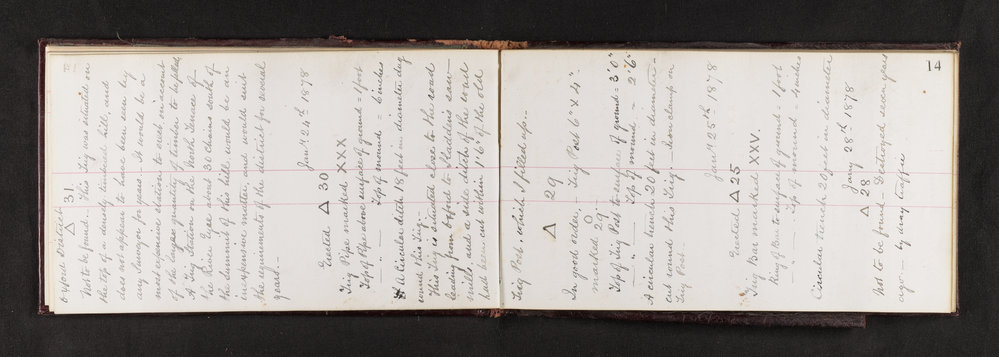 Oxford District
△ 31.
Not to be found – This Trig was situate on
the top of a densely timbered hill, and
does not appear to have been seen by
any Surveyor for years – It would be a
most expensive station to erect on account
of the large quantity of timber to be felled.
A Trig Station on the North Terrace of
the River Eyre about 30 chains south of
the summit of this hill, would be an
inexpensive matter, and would suit
the requirements of the district for several
years. –
Jany 24th 1878
Erected △ 30
Trig Pipe marked XXX
Top of Pipe above surface of ground = 1 foot
– " – Top of mound = 6 inches
A Circular ditch 18 feet in diameter dug
round this Trig –
This Trig is situated close to the road
leading from Oxford to Sladdens saw-
mills and a side ditch of the road
had been cut within 1'6" of the old
14
Trig Post, which I filled up. –
△ 29
In good order – Trig Post 6" x 4".
marked 29.
Top of Trig Post to surface of ground = 3'0"
– " – Top of mound – = 2'6"
A circular trench 20 feet in diameter –
cut round this Trig – Iron clamp on
Trig Post. –
Jany 25th 1878
Erected △ 25
Trig Bar marked XXV.
Ring of Bar to surface of ground = 1 foot
– " – Top of mound = 4 inches
Circular trench 20 feet in diameter
Jany 28th 1878
△ 28
Not to be found – Destroyed seven years
ago – by dray traffic